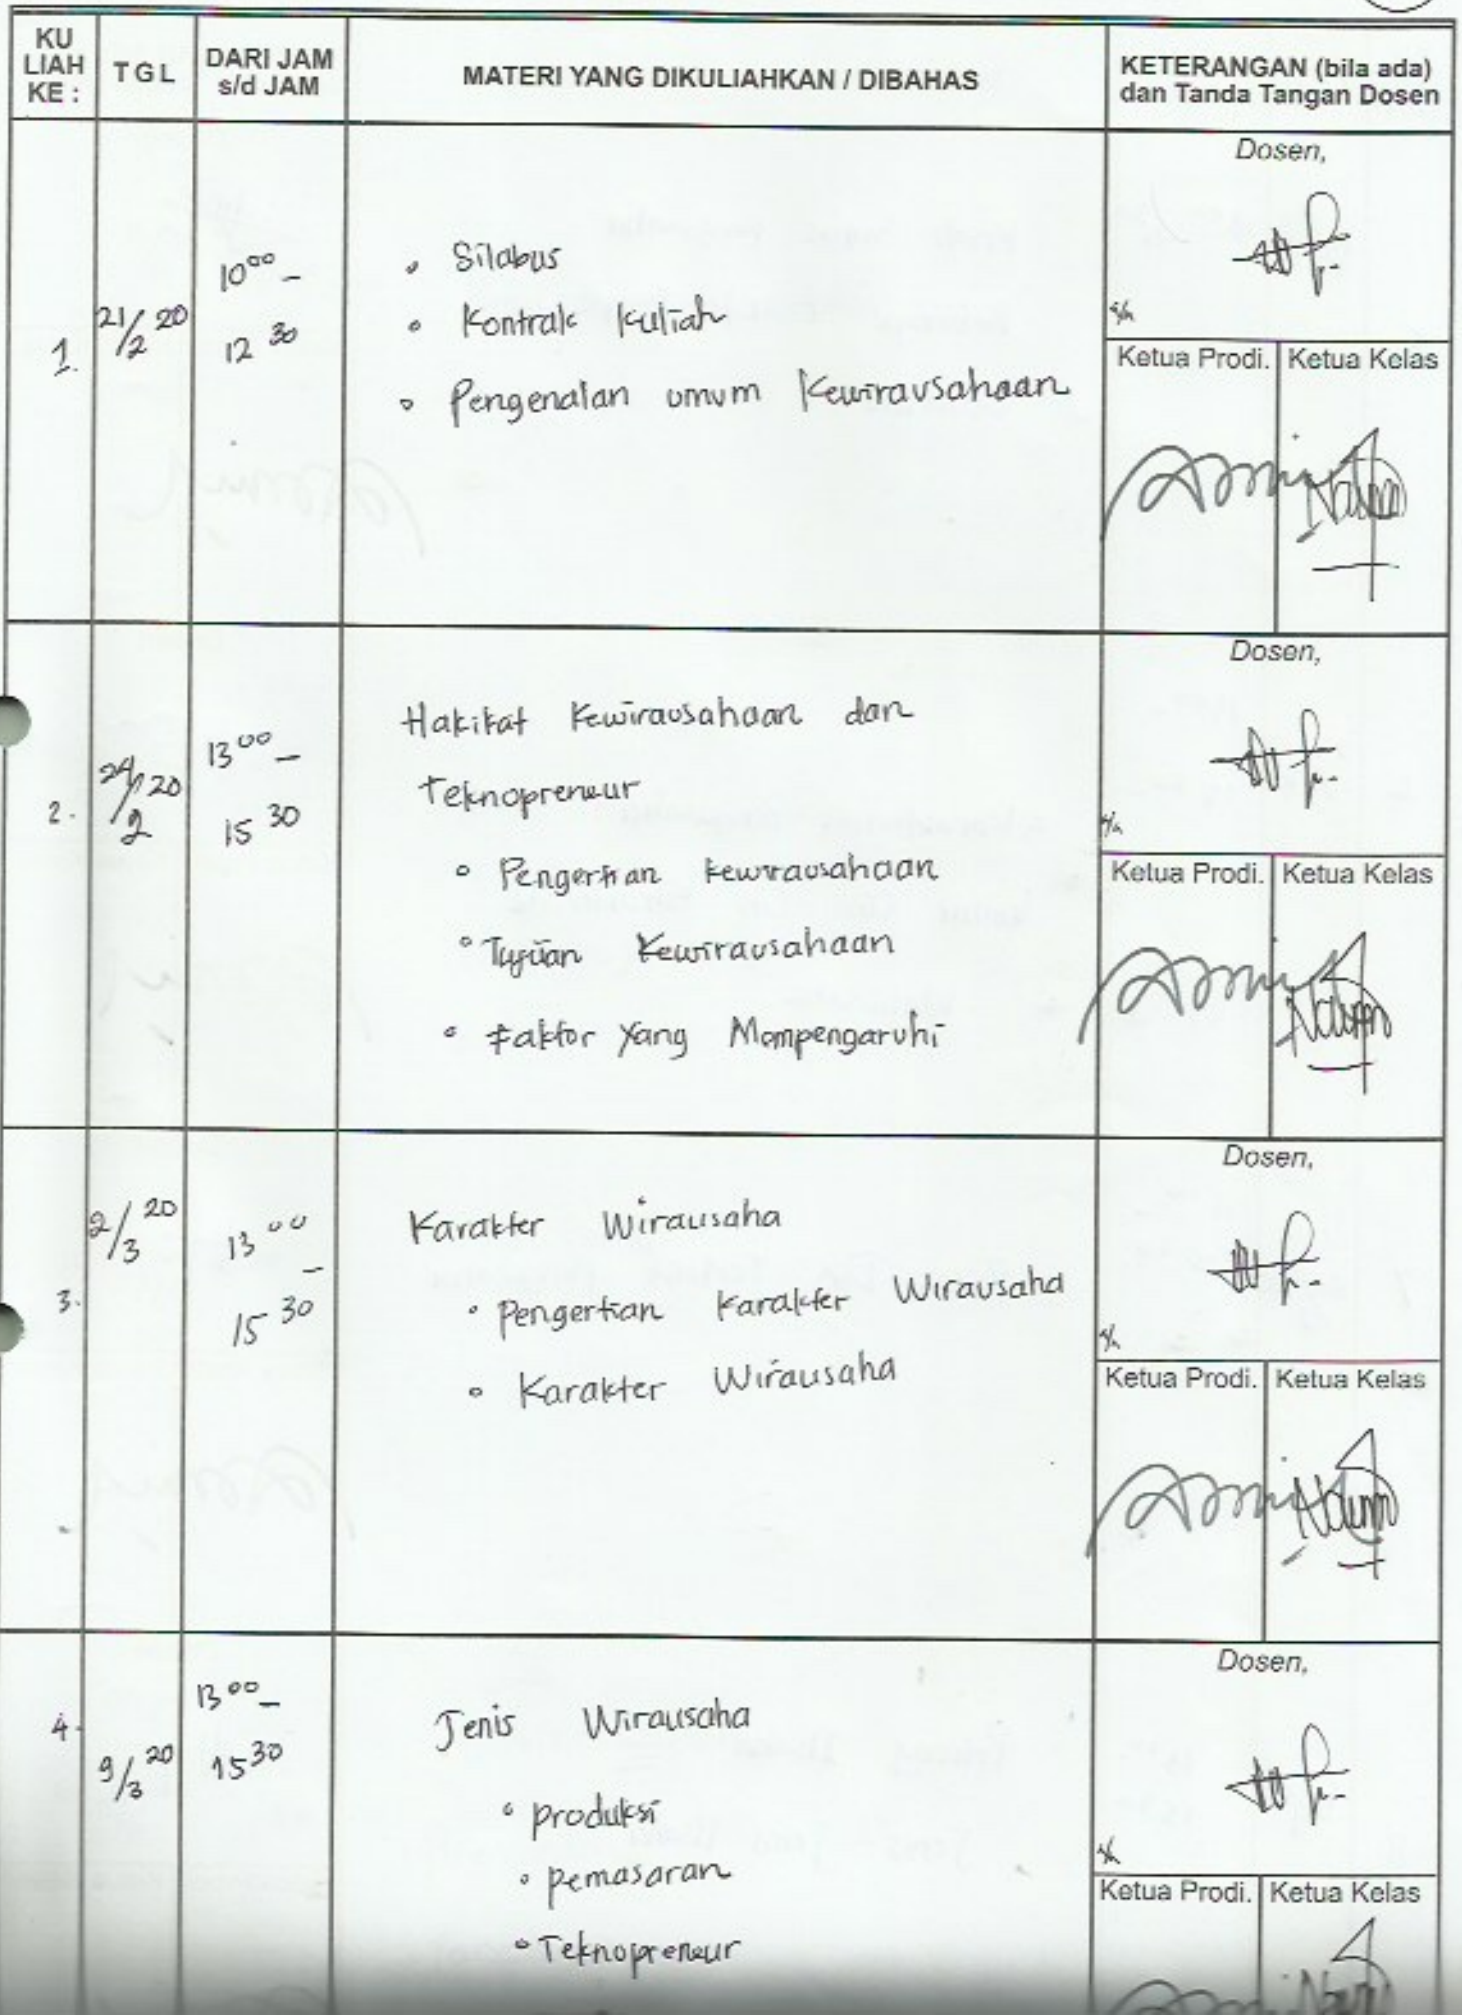 KU LIAH KE :
TGL
DARI JAM s/d JAM
MATERI YANG DIKULIAHKAN / DIBAHAS
KETERANGAN (bila ada) dan Tanda Tangan Dosen
1.
21/2 20
10 00 -
12 30
• Silabus
• Kontrak Kuliah
• Pengenalan umum Kewirausahaan
Dosen,
Ketua Prodi.
Ketua Kelas
2.
24/2 20
13 00 -
15 30
Hakikat Kewirausahaan dan
Teknopreneur
• Pengertian kewirausahaan
• Tujuan Kewirausahaan
• Faktor Yang Mempengaruhi
Dosen,
Ketua Prodi.
Ketua Kelas
3.
2/3 20
13 00 -
15 30
Karakter Wirausaha
• Pengertian Karakter Wirausaha
• Karakter Wirausaha
Dosen,
Ketua Prodi.
Ketua Kelas
4.
9/3 20
13 00 -
15 30
Jenis Wirausaha
• produksi
• pemasaran
• Teknopreneur
Dosen,
Ketua Prodi.
Ketua Kelas